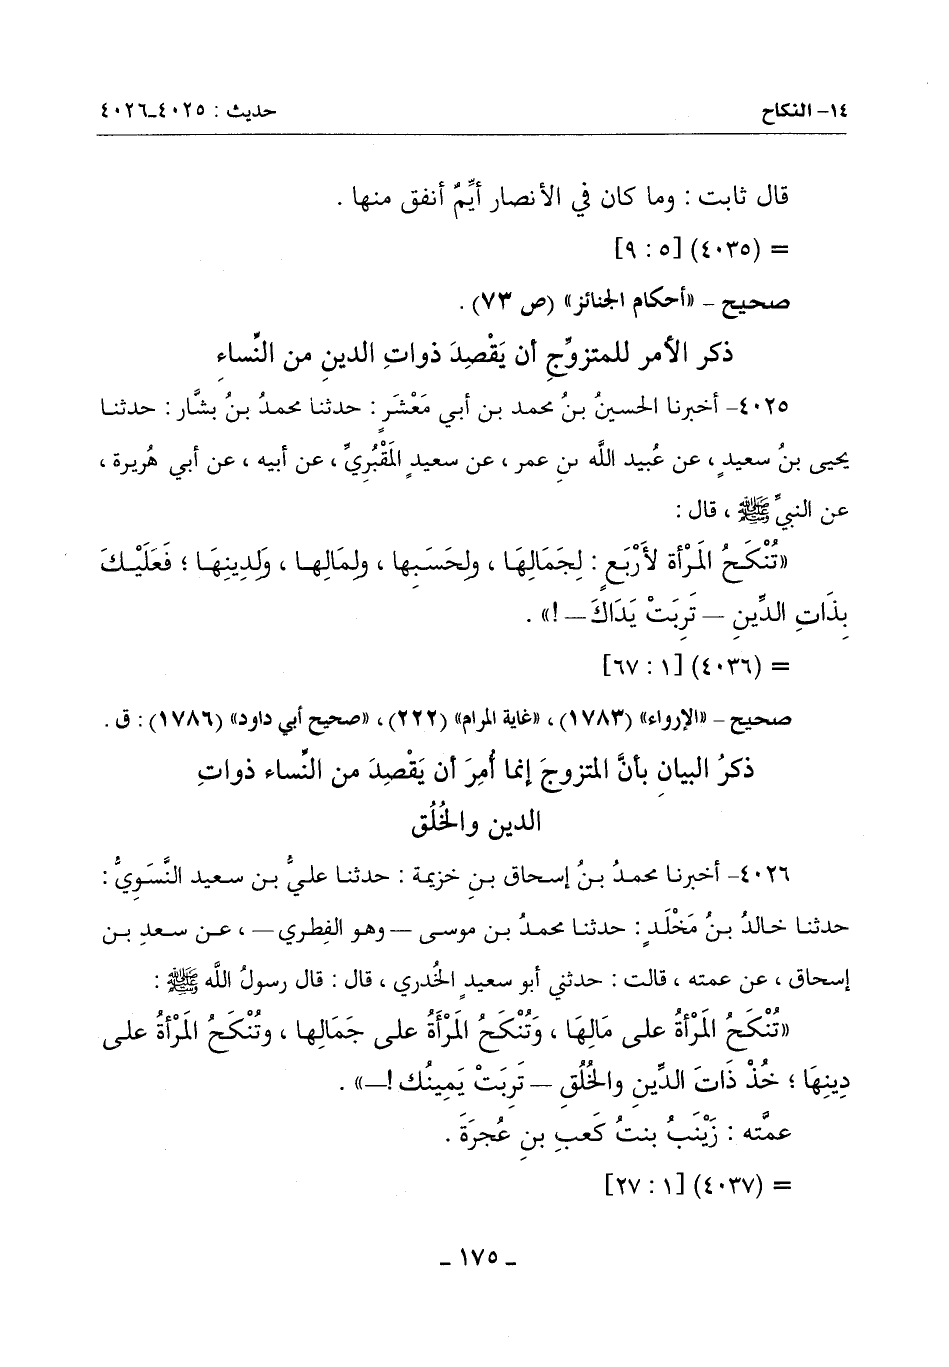 ١٤- النكاح
حديث : ٤٠٢٥ـ٤٠٢٦
قال ثابت : وما كان في الأنصار أَيِّمٌ أنفق منها .
= (٤٠٣٥) [٥ : ٩]
صحيح - «أحكام الجنائز» (ص ٧٣) .
ذكر الأمر للمتزوِّجِ أن يَقْصِدَ ذواتِ الدينِ من النِّساءِ
٤٠٢٥- أخبرنا الحسينُ بنُ محمد بن أبي مَعْشَرٍ : حدثنا محمدُ بنُ بشَّار : حدثنا
يحيى بنُ سعيدٍ ، عن عُبيد اللَّه بنِ عمر ، عن سعيدٍ المَقْبُرِيِّ ، عن أبيه ، عن أبي هُريرة ،
عن النبيِّ ﷺ ، قال :
«تُنْكَحُ المَرْأة لأَرْبَعٍ : لِجَمَالِهَا ، ولِحَسَبِها ، ولِمَالِهـا ، ولِدِينِهَـا ؛ فَعَلَيْـكَ
بِذَاتِ الدِّينِ — تَرِبَتْ يَدَاكَ — !» .
= (٤٠٣٦) [١ : ٦٧]
صحيح - «الإرواء» (١٧٨٣) ، «غاية المرام» (٢٢٢) ، «صحيح أبي داود» (١٧٨٦) : ق .
ذكرُ البيانِ بأنَّ المتزوجَ إنما أُمِرَ أن يَقْصِدَ من النِّساء ذواتِ
الدين والخُلُق
٤٠٢٦- أخبرنا محمدُ بـنُ إسحاق بـنِ خزيمة : حدثنـا عليُّ بـن سـعيد النَّسَـوِيُّ :
حدثنـا خـالدُ بـنُ مَخْلَـدٍ : حدثنـا محمـدُ بـن موسـى —وهو الفِطري— ، عـن سـعدِ بـن
إسحاق ، عن عمته ، قالت : حدثني أبو سعيدٍ الخُدري ، قال : قال رسولُ اللَّه ﷺ :
«تُنْكَحُ المَرْأةُ على مَالِهَا ، وَتُنْكَحُ المَرْأَةُ على جَمَالِها ، وتُنْكَحُ المَرْأةُ على
دِينِهَا ؛ خُذْ ذَاتَ الدِّينِ والخُلُقِ — تَرِبَتْ يَمِينُك !—» .
عمَّته : زَيْنَبُ بنتُ كَعبِ بنِ عُجرَةَ .
= (٤٠٣٧) [١ : ٢٧]
ـ ١٧٥ ـ